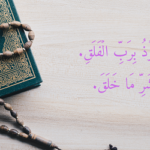 بِرَبِّ الْفَلَقِ.
مَا خَلَقَ.